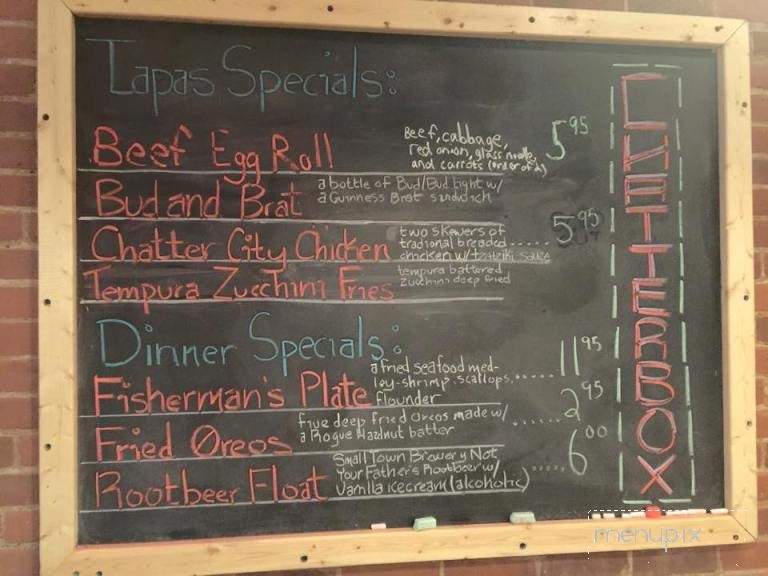 Tapas Specials:
Beef Egg Roll
Beef, cabbage,
red onion, glass noodle,
and carrots (order of 2)
5 95
Bud and Brat
a bottle of Bud/Bud light w/
a Guinness Brat sandwich
Chatter City Chicken
two skewers of
tradional breaded......
chicken w/tzatziki sauce
5 95
Tempura Zucchini Fries
tempura battered
zucchini deep fried
Dinner Specials:
Fisherman's Plate
a fried seafood med-
ley-shrimp, scallops,......
flounder
11 95
Fried Oreos
five deep fried Oreos made w/
a Rogue Hazelnut batter
......
2 95
Rootbeer Float
Small Town Brewery Not
Your Father's Rootbeer w/
vanilla icecream (alcoholic)
.....
6 00
CHATTERBOX
menupix